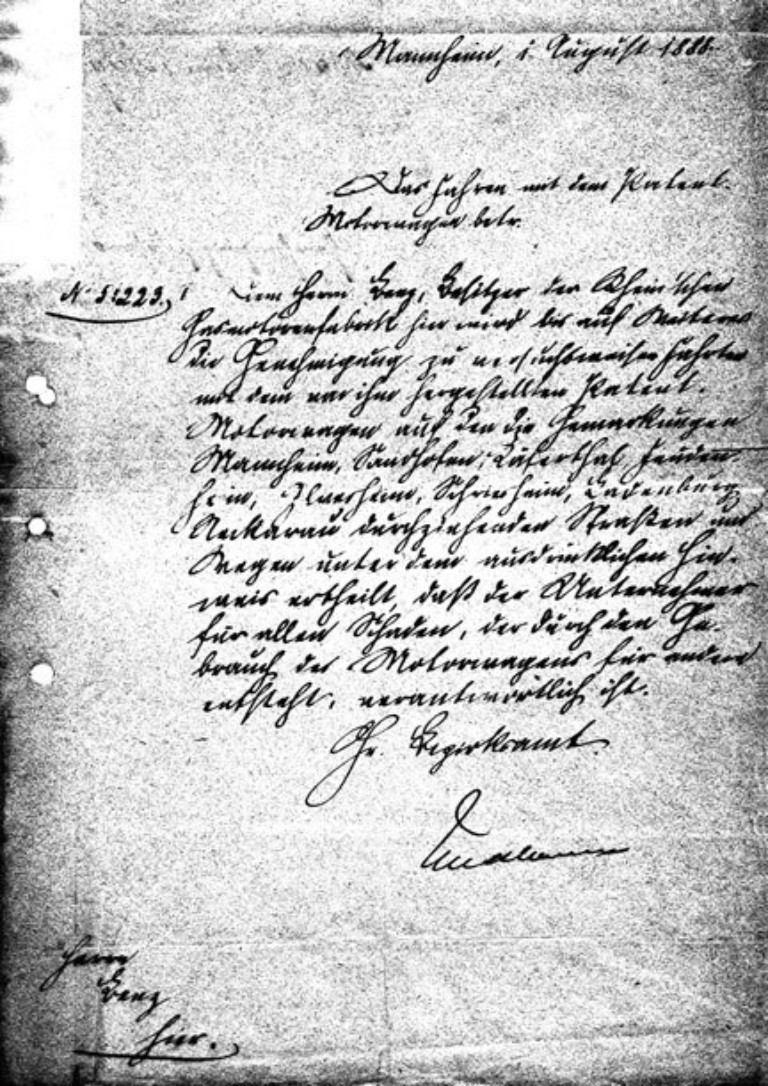 Mannheim, 1. August 1888.
Das Fahren mit dem Patent-
Motorwagen betr.
No 51223. Dem Herrn Benz, Besitzer der Rhein'schen
Gasmotorenfabrik hier wird bis auf Weiteres
die Genehmigung zu versuchsweisen Fahrten
mit dem von ihm hergestellten Patent-
Motorwagen auf den die Gemarkungen
Mannheim, Sandhofen, Käferthal, Feuden-
heim, Ilvesheim, Schriesheim, Ladenburg,
Neckarau durchziehenden Straßen und
Wegen unter dem ausdrücklichen Hin-
weis ertheilt, daß der Unternehmer
für allen Schaden, der durch den Ge-
brauch des Motorwagens für andere
entsteht, verantwortlich ist.
Gr. Bezirksamt.
Herrn
Benz
hier.